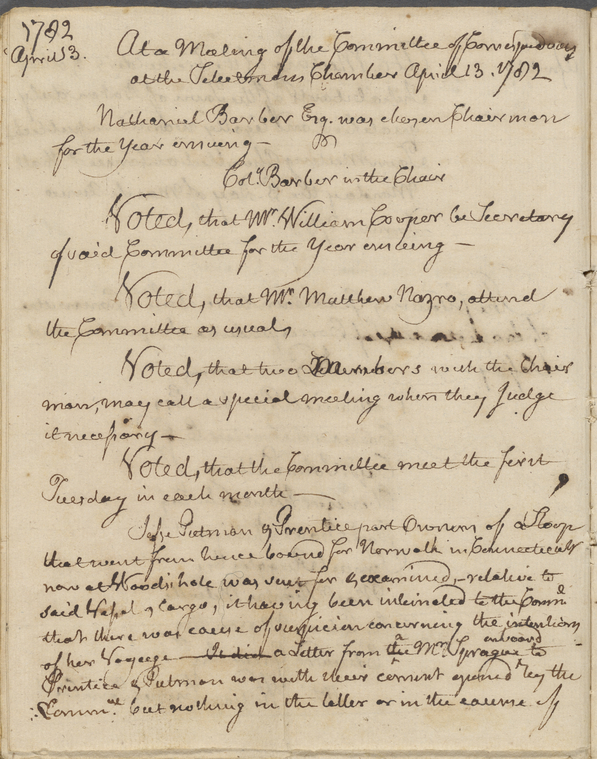 1782
April 13.
At a Meeting of the Committee of Correspondence
at the Selectmens Chamber April 13. 1782
Nathaniel Barber Esq. was chosen Chairman
for the Year ensueing —
Colo. Barber in the Chair
Voted, that Mr. William Cooper be Secretary
of said Committee for the Year ensueing —
Voted, that Mr. Matthew Nazro, attend
the Committee as usual,
Voted, that two Members with the Chair
man, may call a special meeting when they Judge
it necessary —
Voted, that the Committee meet the first
Tuesday in each month —
Jesse Putman & Prentice part Owners of a Sloop
that went from hence bound for Norwalk in Connecticutt
now at Woodshole was sent for & examined, relative to
said Vessel & Cargo, it having been intimated to the Comme.
that there was cause of suspicion concerning the intention
of her Voyage a Letter from a Mr. Sprague onboard to
Prentice & Putman was with their consent opened by the
Commee. but nothing in the letter or in the course of